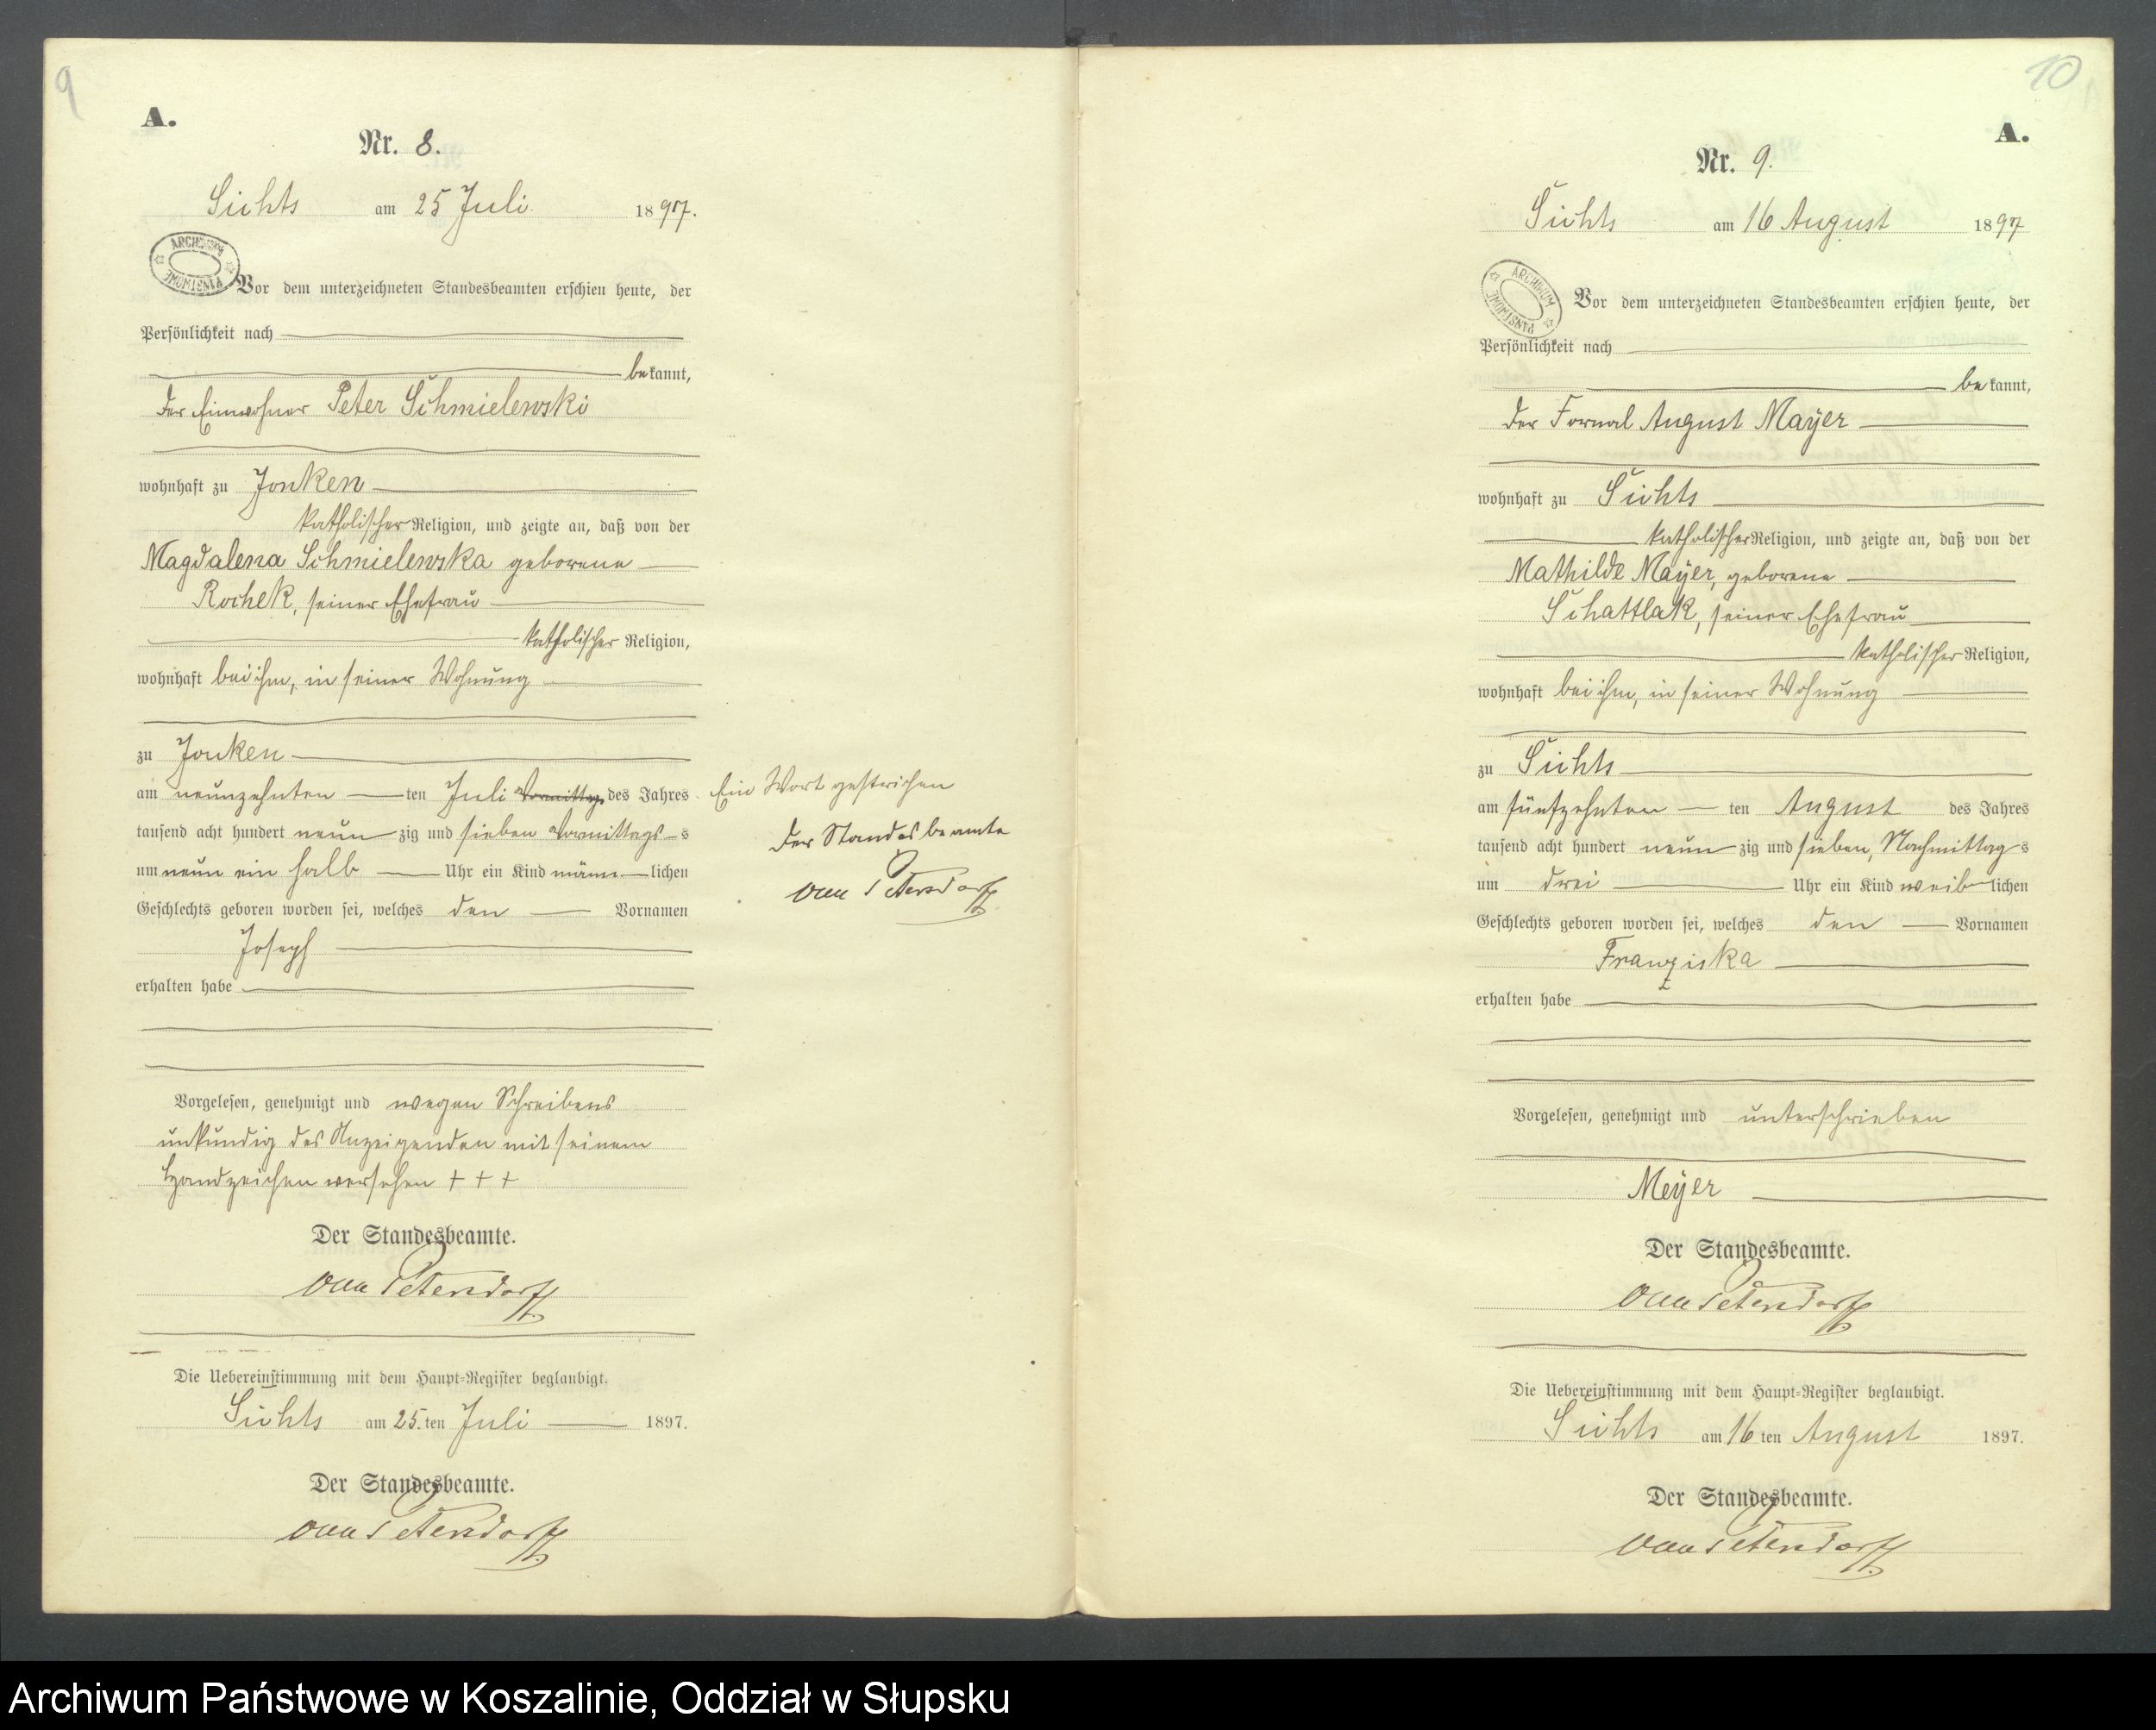 9
A.
Nr. 8.
Sichts am 25 Juli 1897.
ARCHIWUM PAŃSTWOWE
Vor dem unterzeichneten Standesbeamten erschien heute, der
Persönlichkeit nach
bekannt,
der Einwohner Peter Schmielewski
wohnhaft zu Jonken
katholischer Religion, und zeigte an, daß von der
Magdalena Schmielewska geborene
Rochek, seiner Ehefrau
katholischer Religion,
wohnhaft bei ihm, in seiner Wohnung
zu Jonken
am neunzehnten ten Juli Vormittags des Jahres
tausend acht hundert neun zig und sieben Vormittags s
um neun ein halb Uhr ein Kind männ lichen
Geschlechts geboren worden sei, welches den Vornamen
Joseph
erhalten habe
Vorgelesen, genehmigt und wegen Schreibens
unkundig des Anzeigenden mit seinem
Handzeichen versehen + + +
Der Standesbeamte.
von Petersdorff
Die Uebereinstimmung mit dem Haupt-Register beglaubigt.
Sichts am 25. ten Juli 1897.
Der Standesbeamte.
von Petersdorff
Ein Wort gestrichen
Der Standesbeamte
von Petersdorff
10
A.
Nr. 9.
Sichts am 16 August 1897
ARCHIWUM PAŃSTWOWE
Vor dem unterzeichneten Standesbeamten erschien heute, der
Persönlichkeit nach
bekannt,
der Fornal August Mayer
wohnhaft zu Sichts
katholischer Religion, und zeigte an, daß von der
Mathilde Mayer, geborene
Schattlak, seiner Ehefrau
katholischer Religion,
wohnhaft bei ihm, in seiner Wohnung
zu Sichts
am fünfzehnten ten August des Jahres
tausend acht hundert neun zig und sieben, Nachmittag s
um drei Uhr ein Kind weib lichen
Geschlechts geboren worden sei, welches den Vornamen
Franziska
erhalten habe
Vorgelesen, genehmigt und unterschrieben
Meyer
Der Standesbeamte.
von Petersdorff
Die Uebereinstimmung mit dem Haupt-Register beglaubigt.
Sichts am 16 ten August 1897.
Der Standesbeamte.
von Petersdorff
Archiwum Państwowe w Koszalinie, Oddział w Słupsku